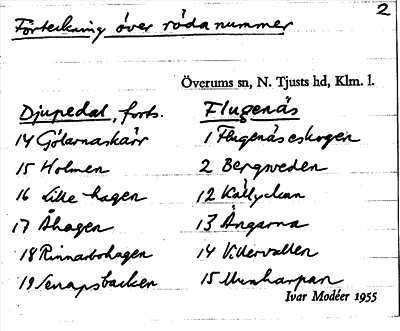 2
Förteckning över röda nummer
Överums sn, N. Tjusts hd, Klm. l.
Djupedal, forts.
14 Gölarnaskärr
15 Holmen
16 Lille hagen
17 Åhagen
18 Rinnarbohagen
19 Senapsbacken
Flugenäs
1 Flugenäseskogen
2 Bergsveden
12 Källyckan
13 Ängarna
14 Vittervallen
15 Munharpan
Ivar Modéer 1955